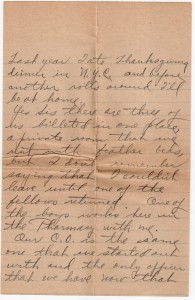 Last year I ate Thanksgiving
dinner in N.Y.C. and before
another rolls around I'll
be at home.
Yes sis there are three of
us billeted in one place,
a private room that is
with feather beds,
but I don't remember
saying that I couldn't
leave until one of the
fellows returned. One of
the boys works here in
the Pharmacy with me.
Our C.O. is the same
one that we started out
with and the only officer
that we have now that